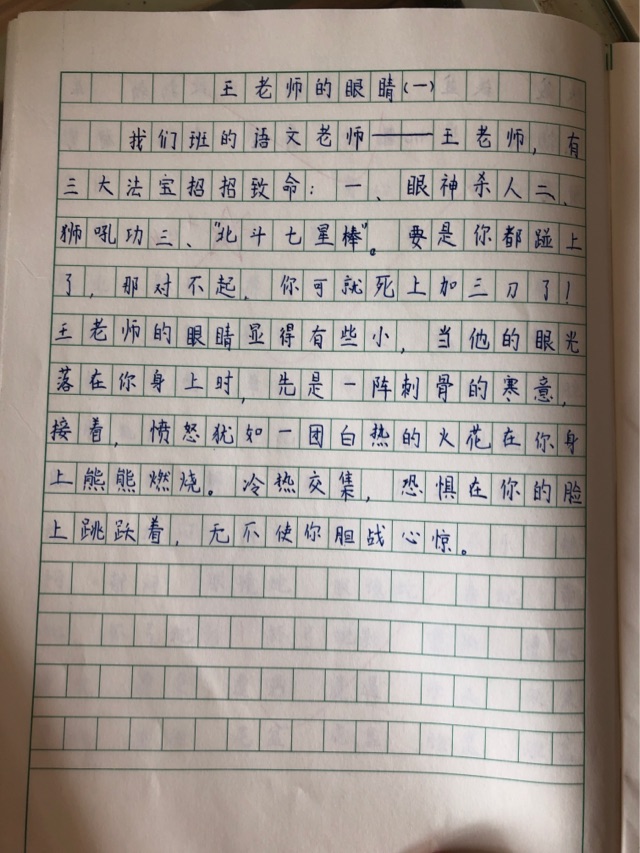 王老师的眼睛(一)
我们班的语文老师——王老师，有
三大法宝招招致命：一、眼神杀人二、
狮吼功三、"北斗七星棒"。要是你都碰上
了，那对不起，你可就死上加三刀了！
王老师的眼睛显得有些小，当他的眼光
落在你身上时，先是一阵刺骨的寒意，
接着，愤怒犹如一团白热的火花在你身
上熊熊燃烧。冷热交集，恐惧在你的脸
上跳跃着，无不使你胆战心惊。